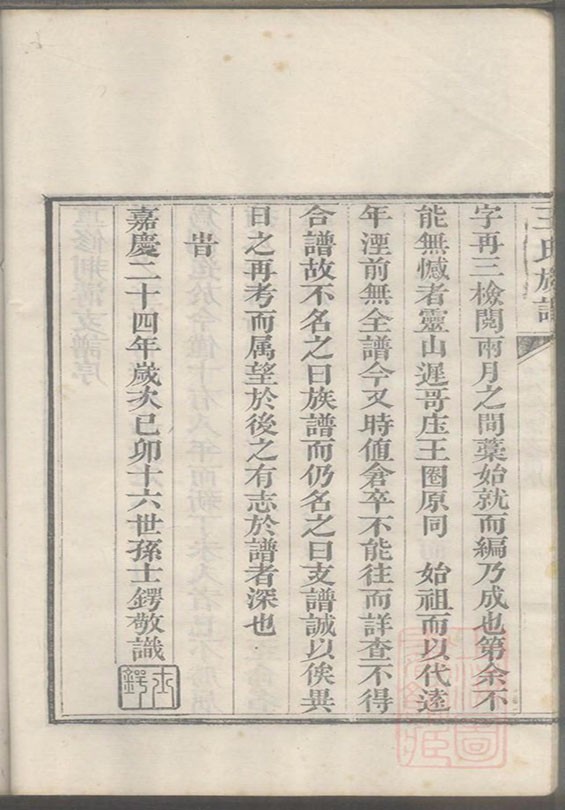 王氏族譜
字再三檢閱兩月之間藁始就而編乃成也第余不
能無憾者靈山遲哥庄王圈原同 始祖而以代遠
年湮前無全譜今又時值倉卒不能往而詳查不得
合譜故不名之曰族譜而仍名之曰支譜誠以俟異
日之再考而属望於後之有志於譜者深也
旹
嘉慶二十四年歲次己卯十六世孫士鍔敬識
士鍔